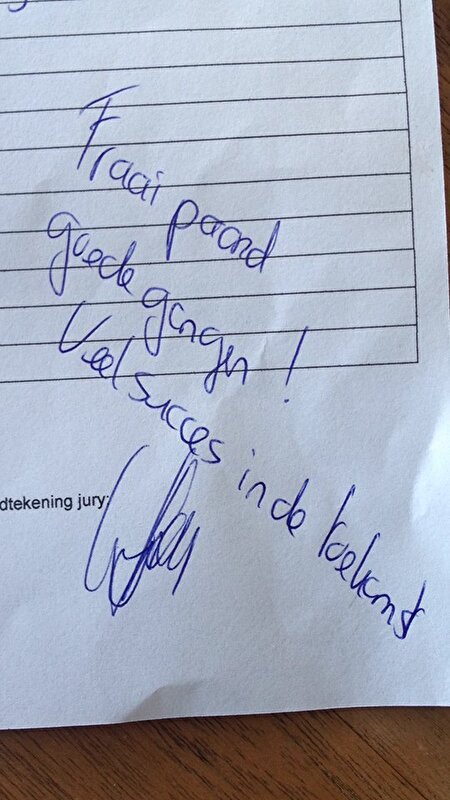 Fraai paard
goede gangen!
Veel succes in de toekomst
dtekening jury: